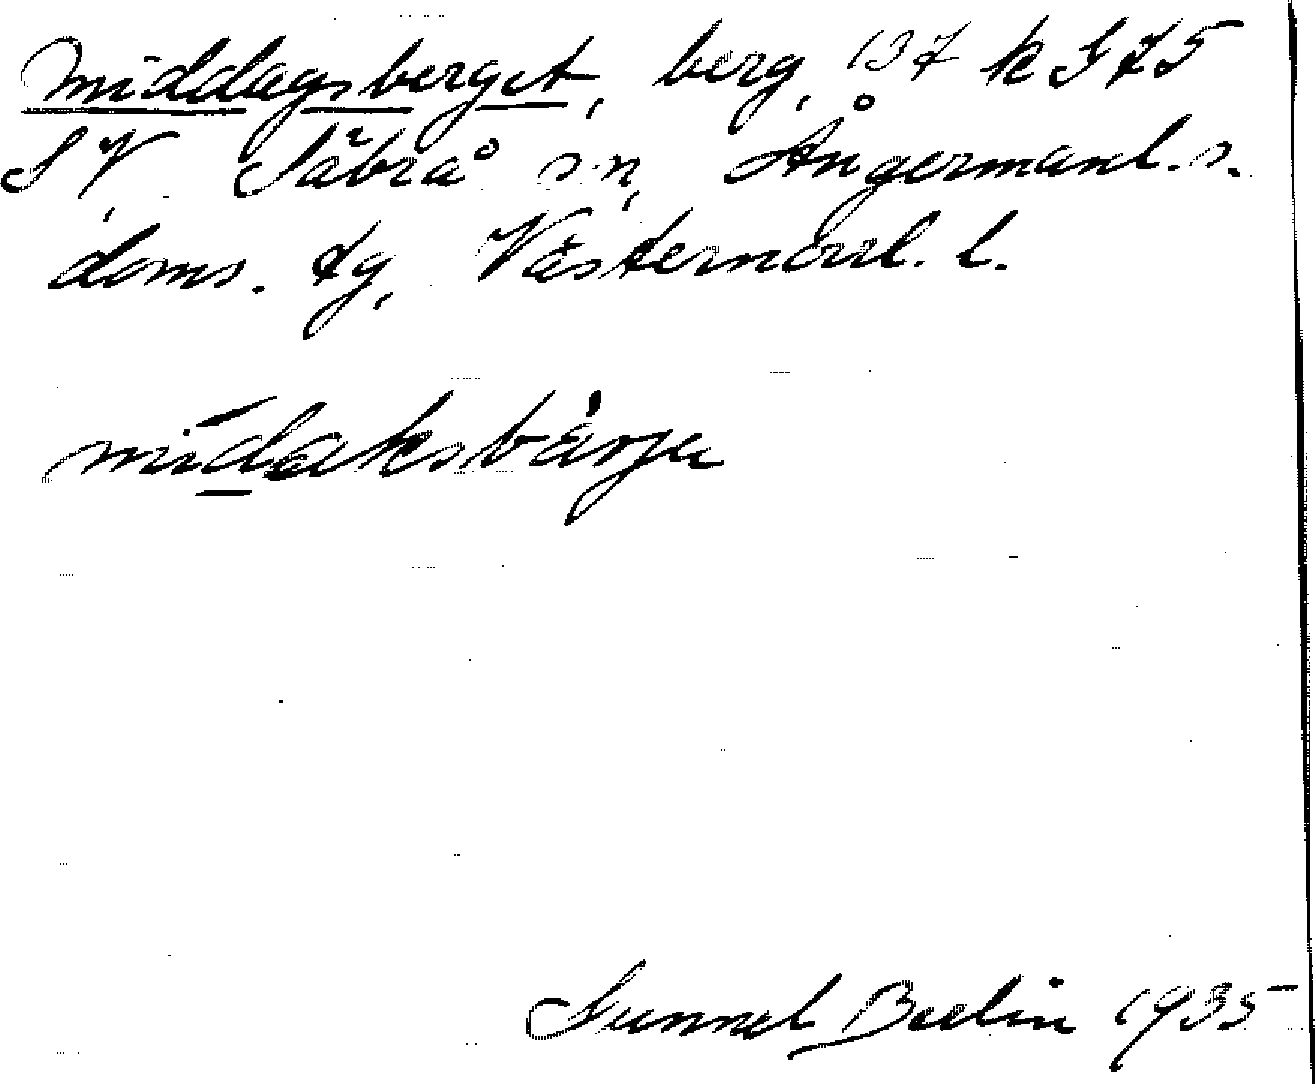 Middagsberget, berg, 137 k S 75
S V, Säbrå s:n, Ångermanl. s.
doms. tg, Västernorrl. l.
mídaksbärje
Gunnel Beelin 1935